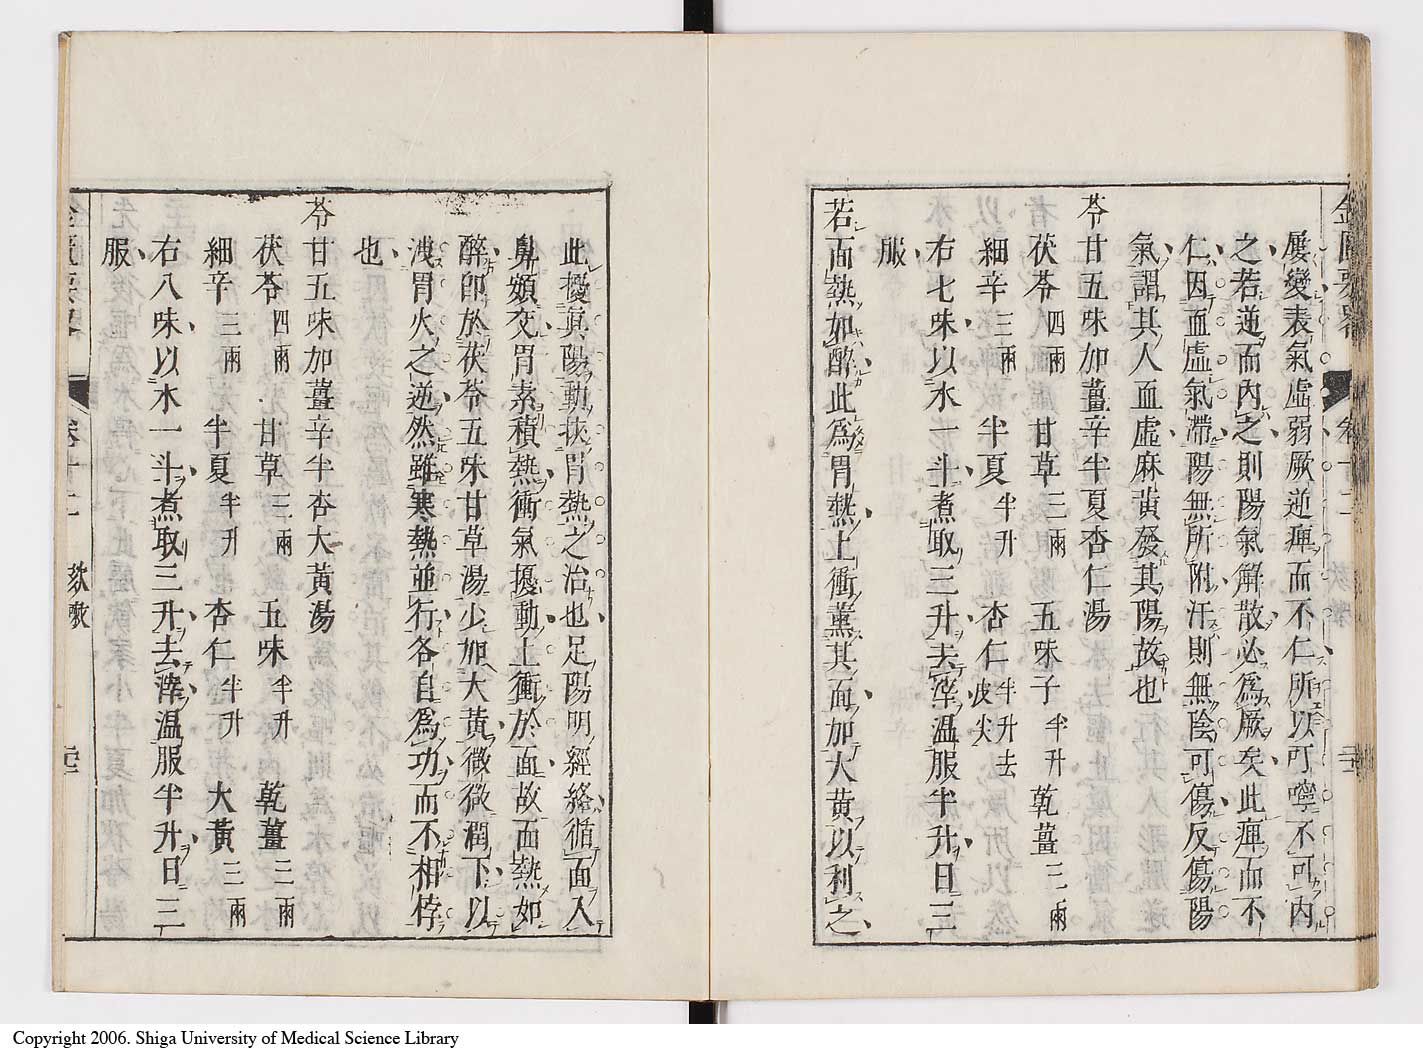 金匱要畧 卷十二 欬嗽
屢變表氣虛弱厥逆痺而不仁所以可嚀不可內
之若逆而內之則陽氣解散必為厥矣此痺而不
仁因血虛氣滯陽無所附汗則無陰可傷反傷陽
氣謂其人血虛麻黃發其陽故也
苓甘五味加薑辛半夏杏仁湯
茯苓四兩 甘草三兩 五味子半升 乾薑三兩
細辛三兩 半夏半升 杏仁半升去皮尖
右七味以水一斗煮取三升去滓溫服半升日三
服
若面熱如醉此為胃熱上衝薰其面加大黃以利之
此擾真陽動挾胃熱之治也足陽明經絡循面入
鼻頞交胃素積熱衝氣擾動上衝於面故面熱如
醉卽於茯苓五味甘草湯少加大黃微微潤下以
洩胃火之逆然雖寒熱並行各自為功而不相悖
也
苓甘五味加薑辛半杏大黃湯
茯苓四兩 甘草三兩 五味半升 乾薑三兩
細辛三兩 半夏半升 杏仁半升 大黃三兩
右八味以水一斗煮取三升去滓溫服半升日三
服
金匱要畧 卷十二 欬嗽